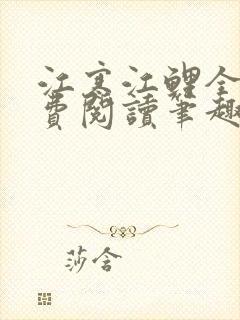 江寒江鲤全
費閱讀筆趣
莎含